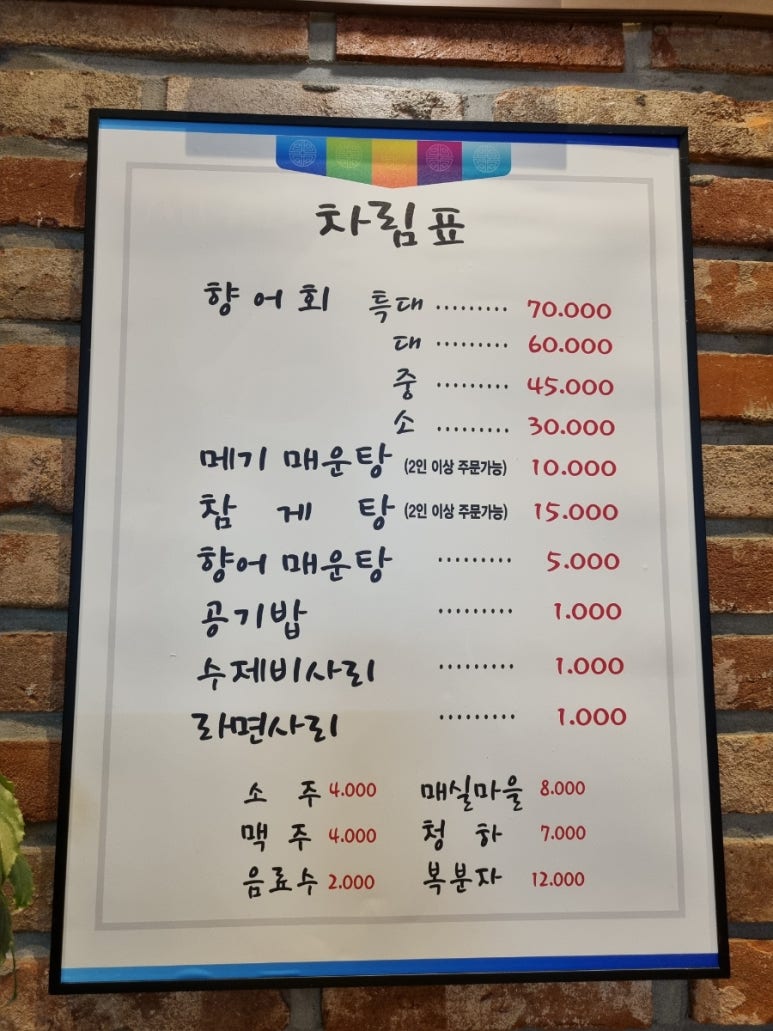 차림표
향어회 특대 ········· 70.000
대 ········· 60.000
중 ········· 45.000
소 ········· 30.000
메기 매운탕 (2인 이상 주문가능) 10.000
참 게 탕 (2인 이상 주문가능) 15.000
향어 매운탕 ········· 5.000
공기밥 ········· 1.000
수제비사리 ········· 1.000
라면사리 ········· 1.000
소 주 4.000 매실마을 8.000
맥 주 4.000 청 하 7.000
음료수 2.000 복분자 12.000